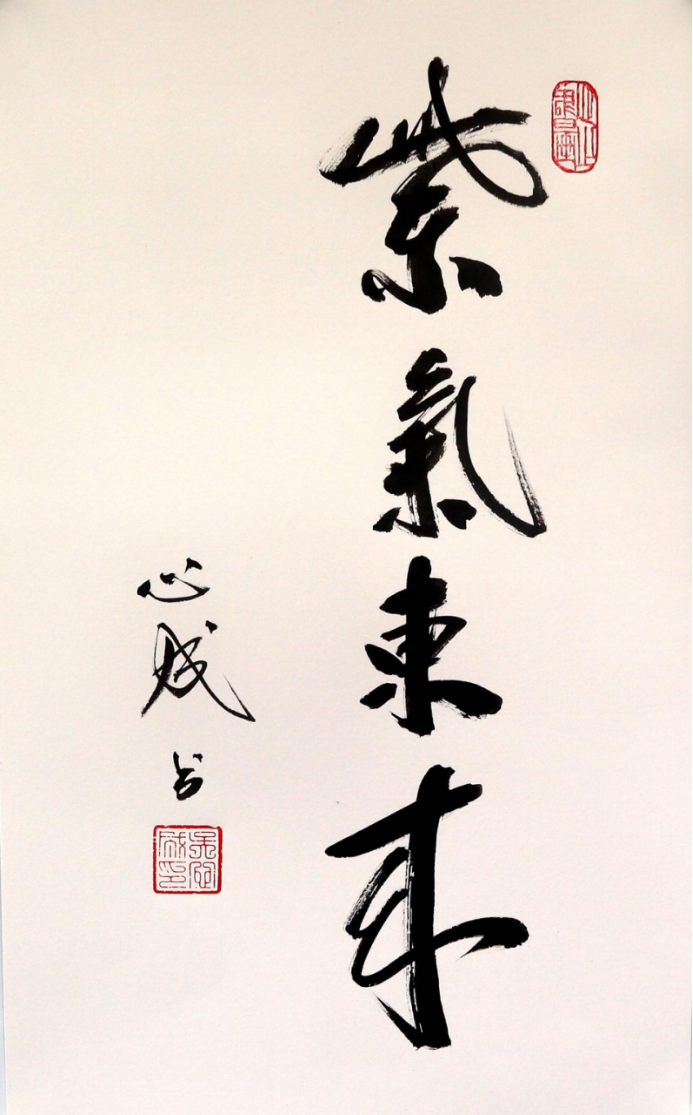 紫氣東來
心成书